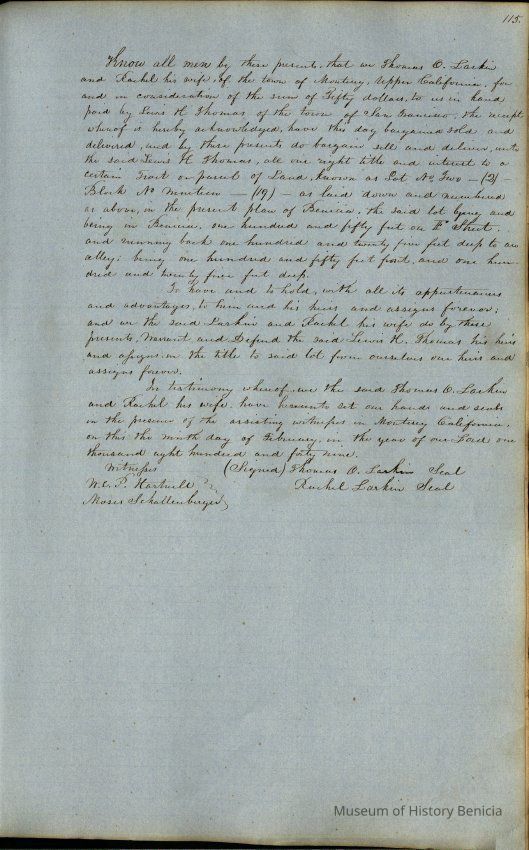 115.
Know all men by these present, that we Thomas O. Larkin
and Rachel his wife, of the town of Monterey, Upper California, for
and in consideration of the sum of Fifty dollars, to us in hand
paid by Lewis H Thomas of the town of San Francisco, the receipt
whereof is hereby acknowledged, have this day bargained sold and
delivered, and by these presents do bargain sell and deliver, unto
the said Lewis H Thomas, all our right title and interest to a
certain Tract or parcel of Land, known as Lot No Two - (2) -
Block No Nineteen - (19) - as laid down and numbered
as above, in the present plan of Benicia, the said lot lying and
being in Benicia, one hundred and fifty feet on Street,
and running back one hundred and twenty five feet deep to an
alley; being one hundred and fifty feet front, and one hun-
dred and twenty five feet deep.
To have and to hold, with all its appurtenances
and advantages, to him and his heirs and assigns forever;
and we the said Larkin and Rachel his wife do by these
presents, Warrant and Defend the said Lewis H. Thomas his heirs
and assigns in the title to said lot from ourselves our heirs and
assigns forever.
In testimony whereof, we the said Thomas O. Larkin
and Rachel his wife, have hereunto set our hands and seals
in the presence of the assisting witnesses in Monterey California,
on this the ninth day of February, in the year of our Lord one
thousand eight hundred and forty nine.
Witnesses (Signed) Thomas O. Larkin Seal
W. E. P. Hartnell Rachel Larkin Seal
Moses Schallenberger
Museum of History Benicia